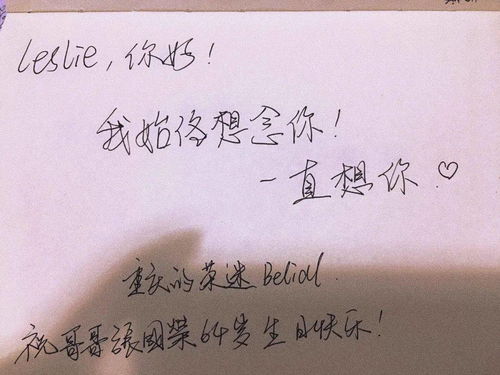 Leslie, 你好!
我始终想念你!
一直想你!♡
重庆的荣迷 Belial.
祝哥哥張國榮64岁生日快乐!